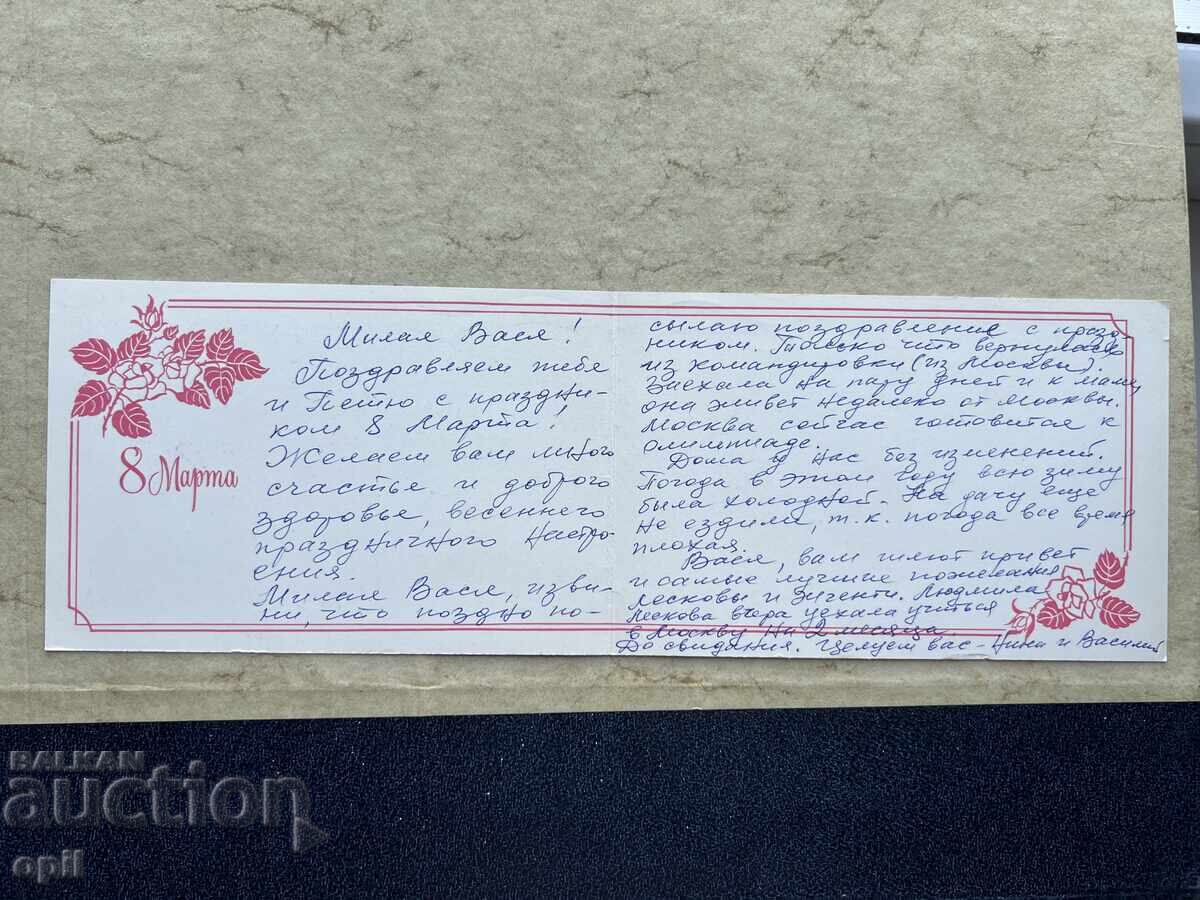 8 Марта
Милая Вася!
Поздравляем тебе
и Петю с праздни-
ком 8 Марта!
Желаем вам много
счастье и доброго
здоровье, весеннего
праздничного настро-
ения.
Милая Вася, изви-
ни, что поздно по-
сылаю поздравление с празд-
ником. Только что вернулась
из командировки (из Москвы).
Заехала на пару дней и к маме,
она живет недалеко от Москвы.
Москва сейчас готовится к
олимпиаде.
Дома у нас без изменений.
Погода в этом году всю зиму
была холодной. На дачу еще
не ездили, т.к. погода все время
плохая.
Вася, вам шлют привет
и самые лучшие пожелания
Лесковы и. Людмила
Лескова вчера уехала учиться
в Москву на 2 месяца.
До свидания. Целуем вас - Нина и Василий
BALKAN
auction
opil